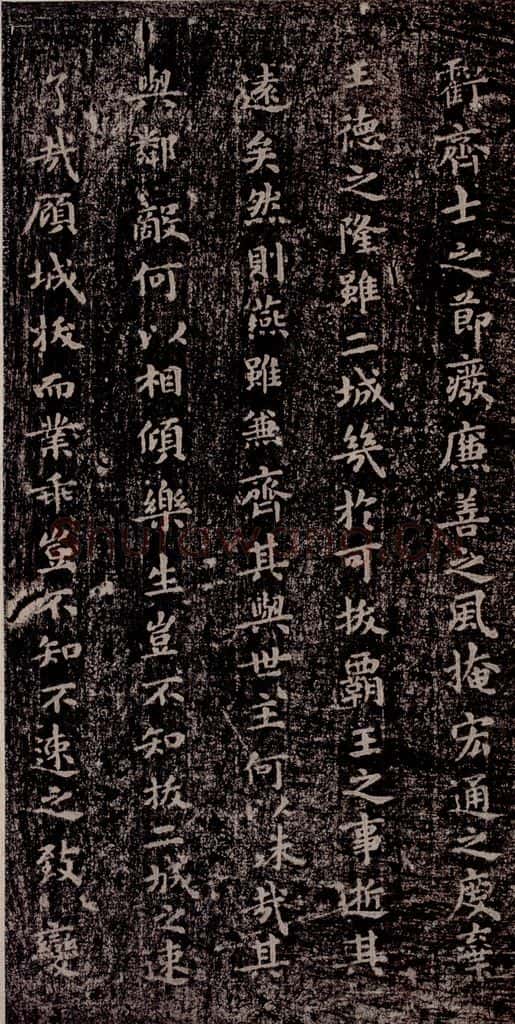 虧齊士之節廢廉善之風掩宏通之度棄
王德之隆雖二城幾於可拔霸王之事逝其
遠矣然則燕雖兼齊其與世主何以殊哉其
與鄰敵何以相傾樂生豈不知拔二城之速
了哉顧城拔而業乖豈不知不速之致變